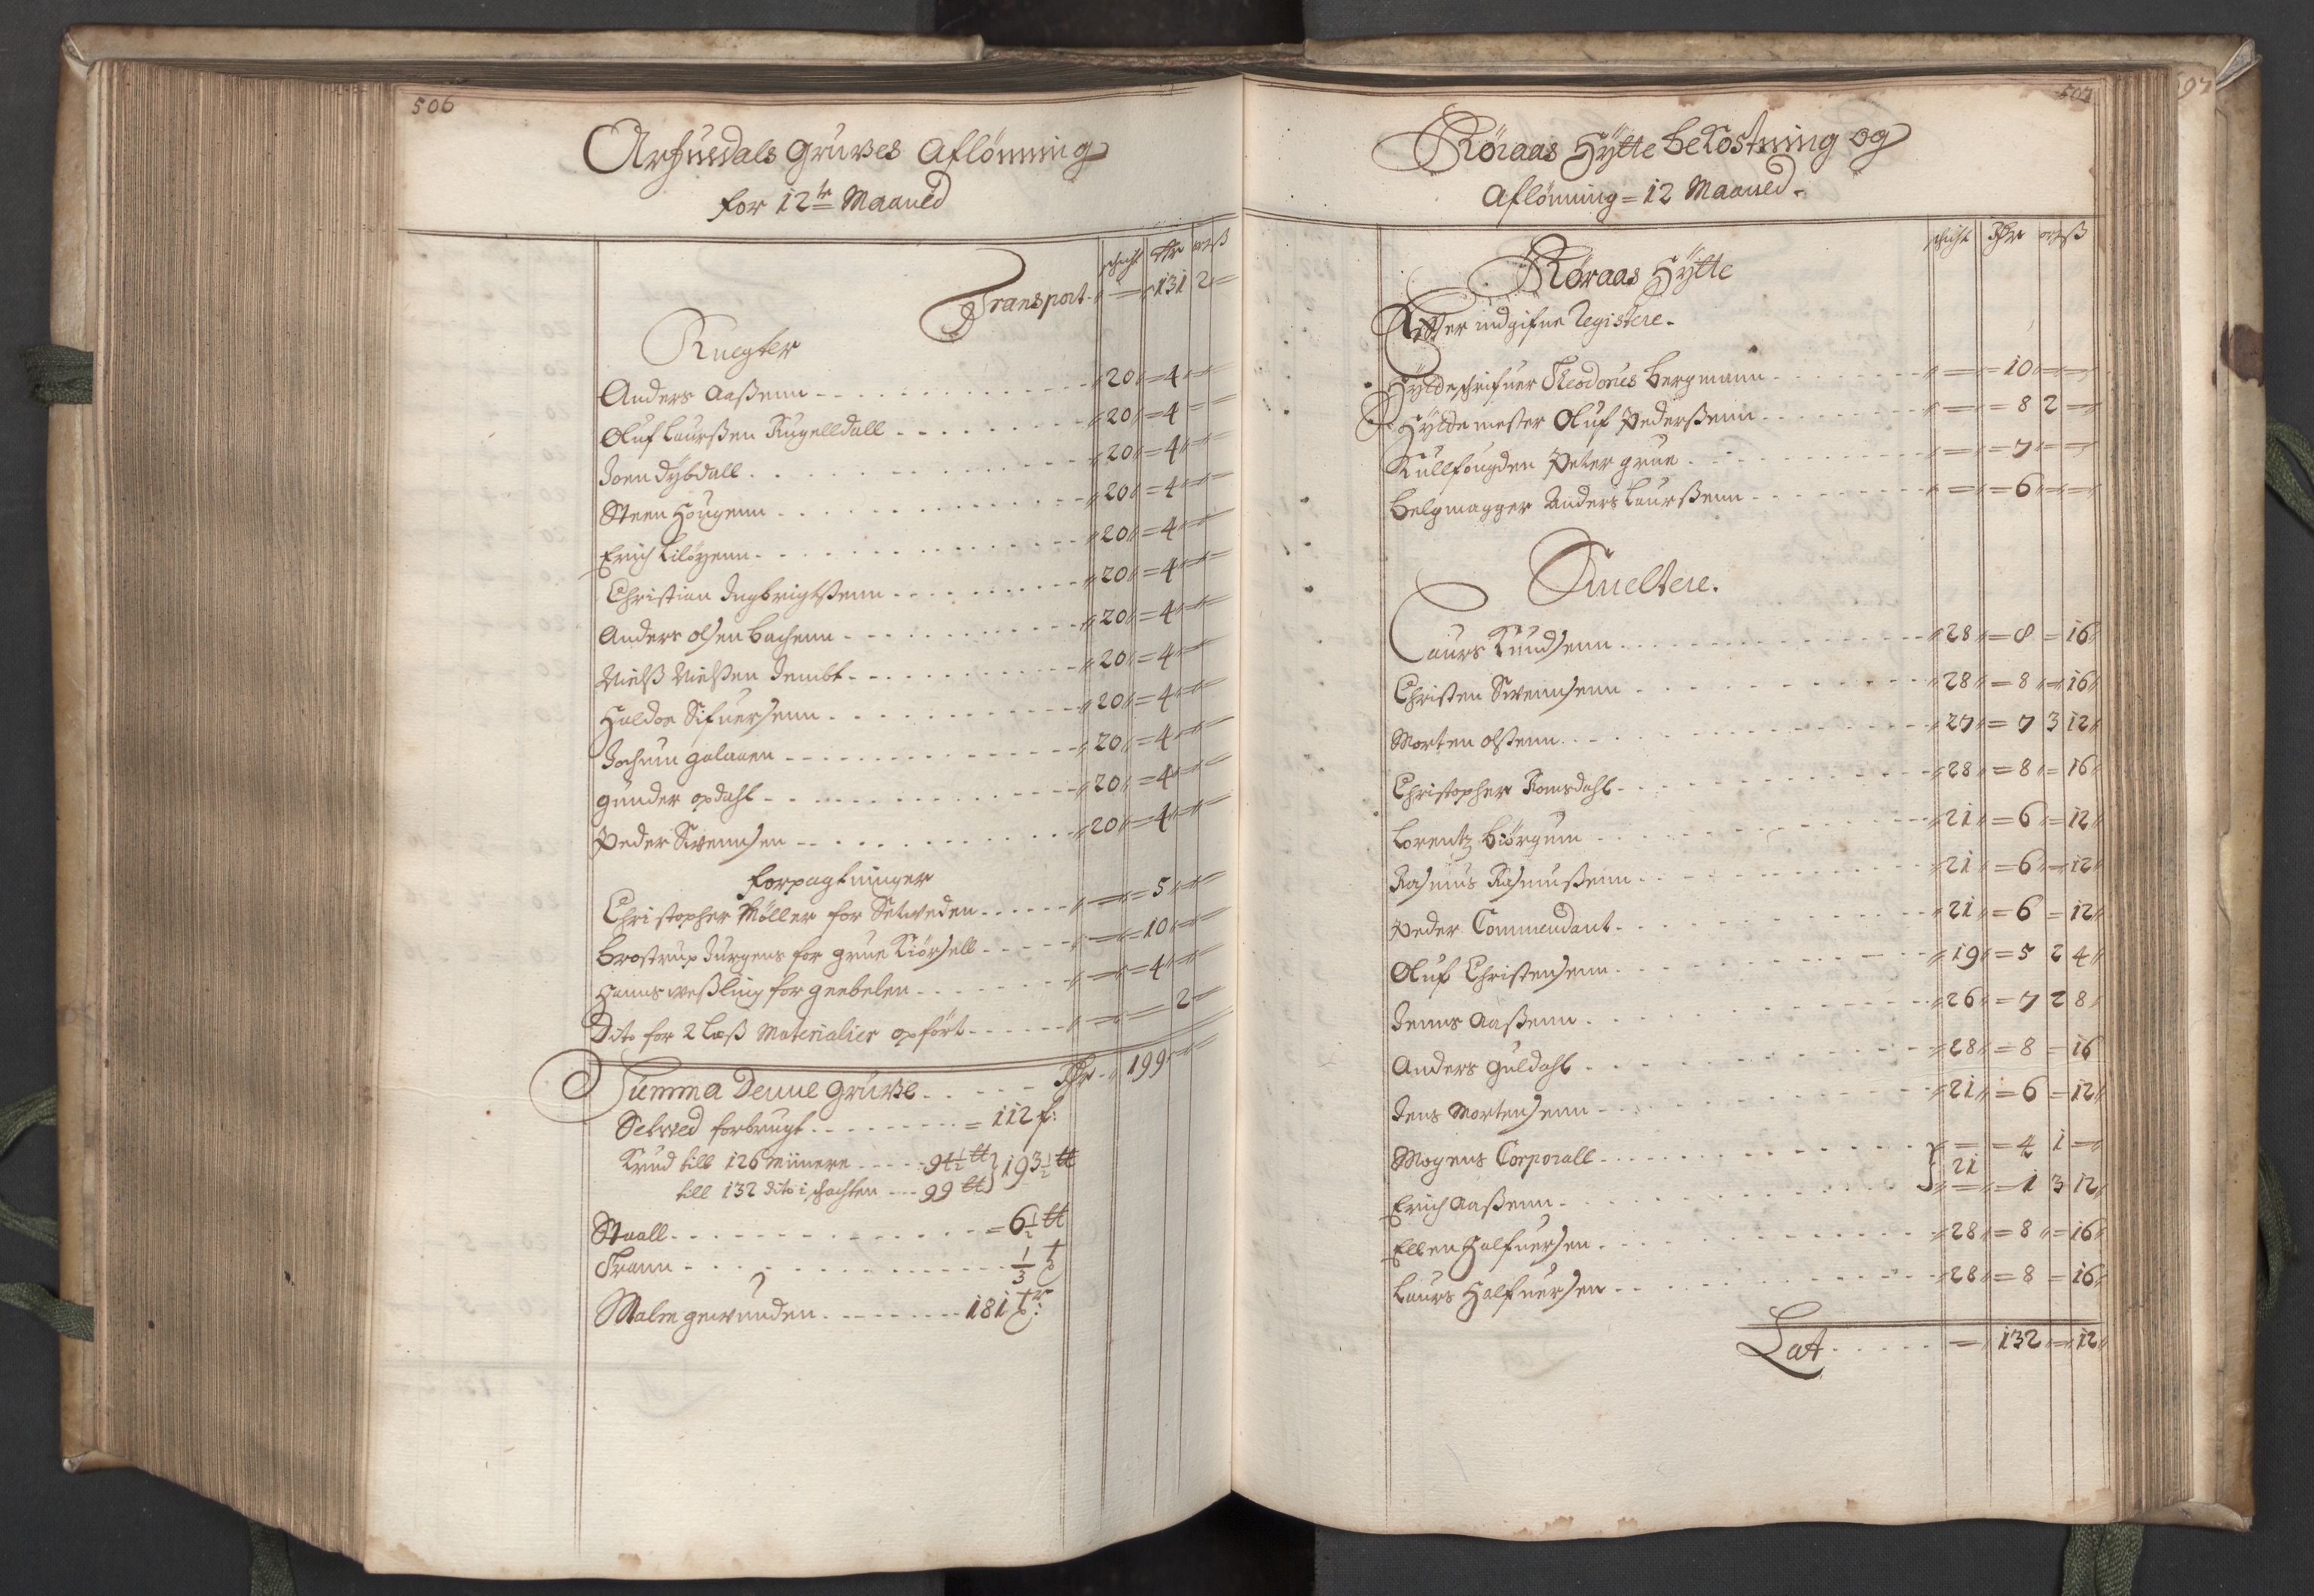 506
Arfuedals Gruves Aflønning
for 12te Maaned
schicht Rdr ort ß
Transport = 131 2 =
Knegter
Anders Aaßenn 20 = 4 =
Oluf Laurßen Kugelldall 20 = 4 =
Joen Dybdall 20 = 4 =
Steen Hougenn 20 = 4 =
Erich Liløyenn 20 = 4 =
Christian Ingbrigtßenn 20 = 4 =
Anders Olsen Bachenn 20 = 4 =
Nielß Nielßen Jembt 20 = 4 =
Haldor Sifuersenn 20 = 4 =
Jochum Galaaen 20 = 4 =
Gunder Opdahl 20 = 4 =
Peder Svennsen 20 = 4 =
forpagtninger
Christopher Møller for Setveden = 5 =
Brostrup Jürgens for grue Kiørsell = 10 =
Hanns Weßling for geebelen = 4 =
Dito for 2 Læß Materialier opført = = 2 =
Summa Denne Gruve Rdr 199 =
Setved forbrugt = 112 f:
Krud till 126 Miinere 94 1/2 ℔ } 193 1/2 ℔
till 132 dito i schachten 99 ℔
Staall = 6 1/2 ℔
Trann 1/3 t
Malm gewunden 181 tr:
507
Røraas Hytte bekostning og
Aflønning = 12 Maaned
schicht Rdr ort ß
Røraas Hytte
Effter indgifne Registere
Hytteschrifuer Theodorus Bergmann = = 10 = =
Hyttemester Oluf Pederßenn = = 8 2 =
Kullfougden Peter Grue = = 7 = =
Belgmagger Anders Laurßenn = = 6 = =
Smeltere.
Laurs Knudsenn 28 = 8 = 16
Christen Svennsenn 28 = 8 = 16
Morten Olßenn 27 = 7 3 12
Christopher Romsdahl 28 = 8 = 16
Lorentz Biørgum 21 = 6 = 12
Rasmus Rasmußenn 21 = 6 = 12
Peder Commendant 21 = 6 = 12
Oluf Christensenn 19 = 5 2 4
Jenns Aaßenn 26 = 7 2 8
Anders Guldahl 28 = 8 = 16
Jens Mortensenn 21 = 6 = 12
Mogens Corporall } 21 = 4 1 =
Erich Aaßenn = 1 3 12
Ellen Halfuersen 28 = 8 = 16
Laurs Halfuersen 28 = 8 = 16
Lat = 132 = 12